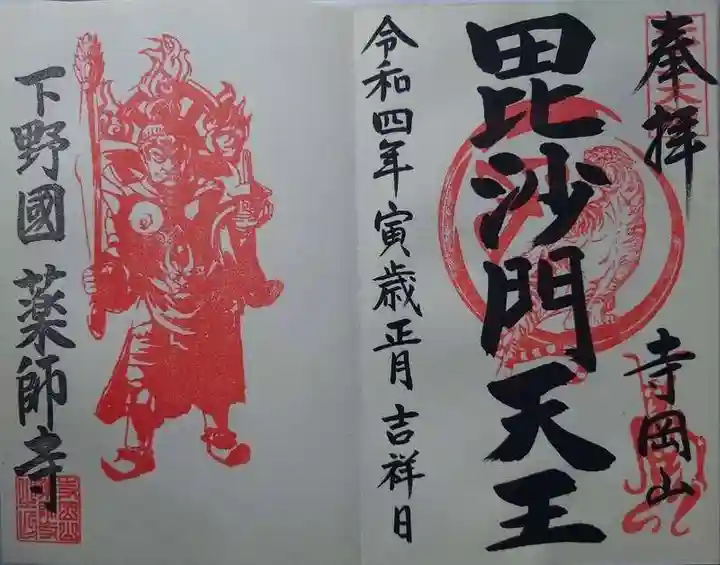 奉拝
寺岡山
毘沙門天王
令和四年寅歳正月吉祥日
下野國薬師寺